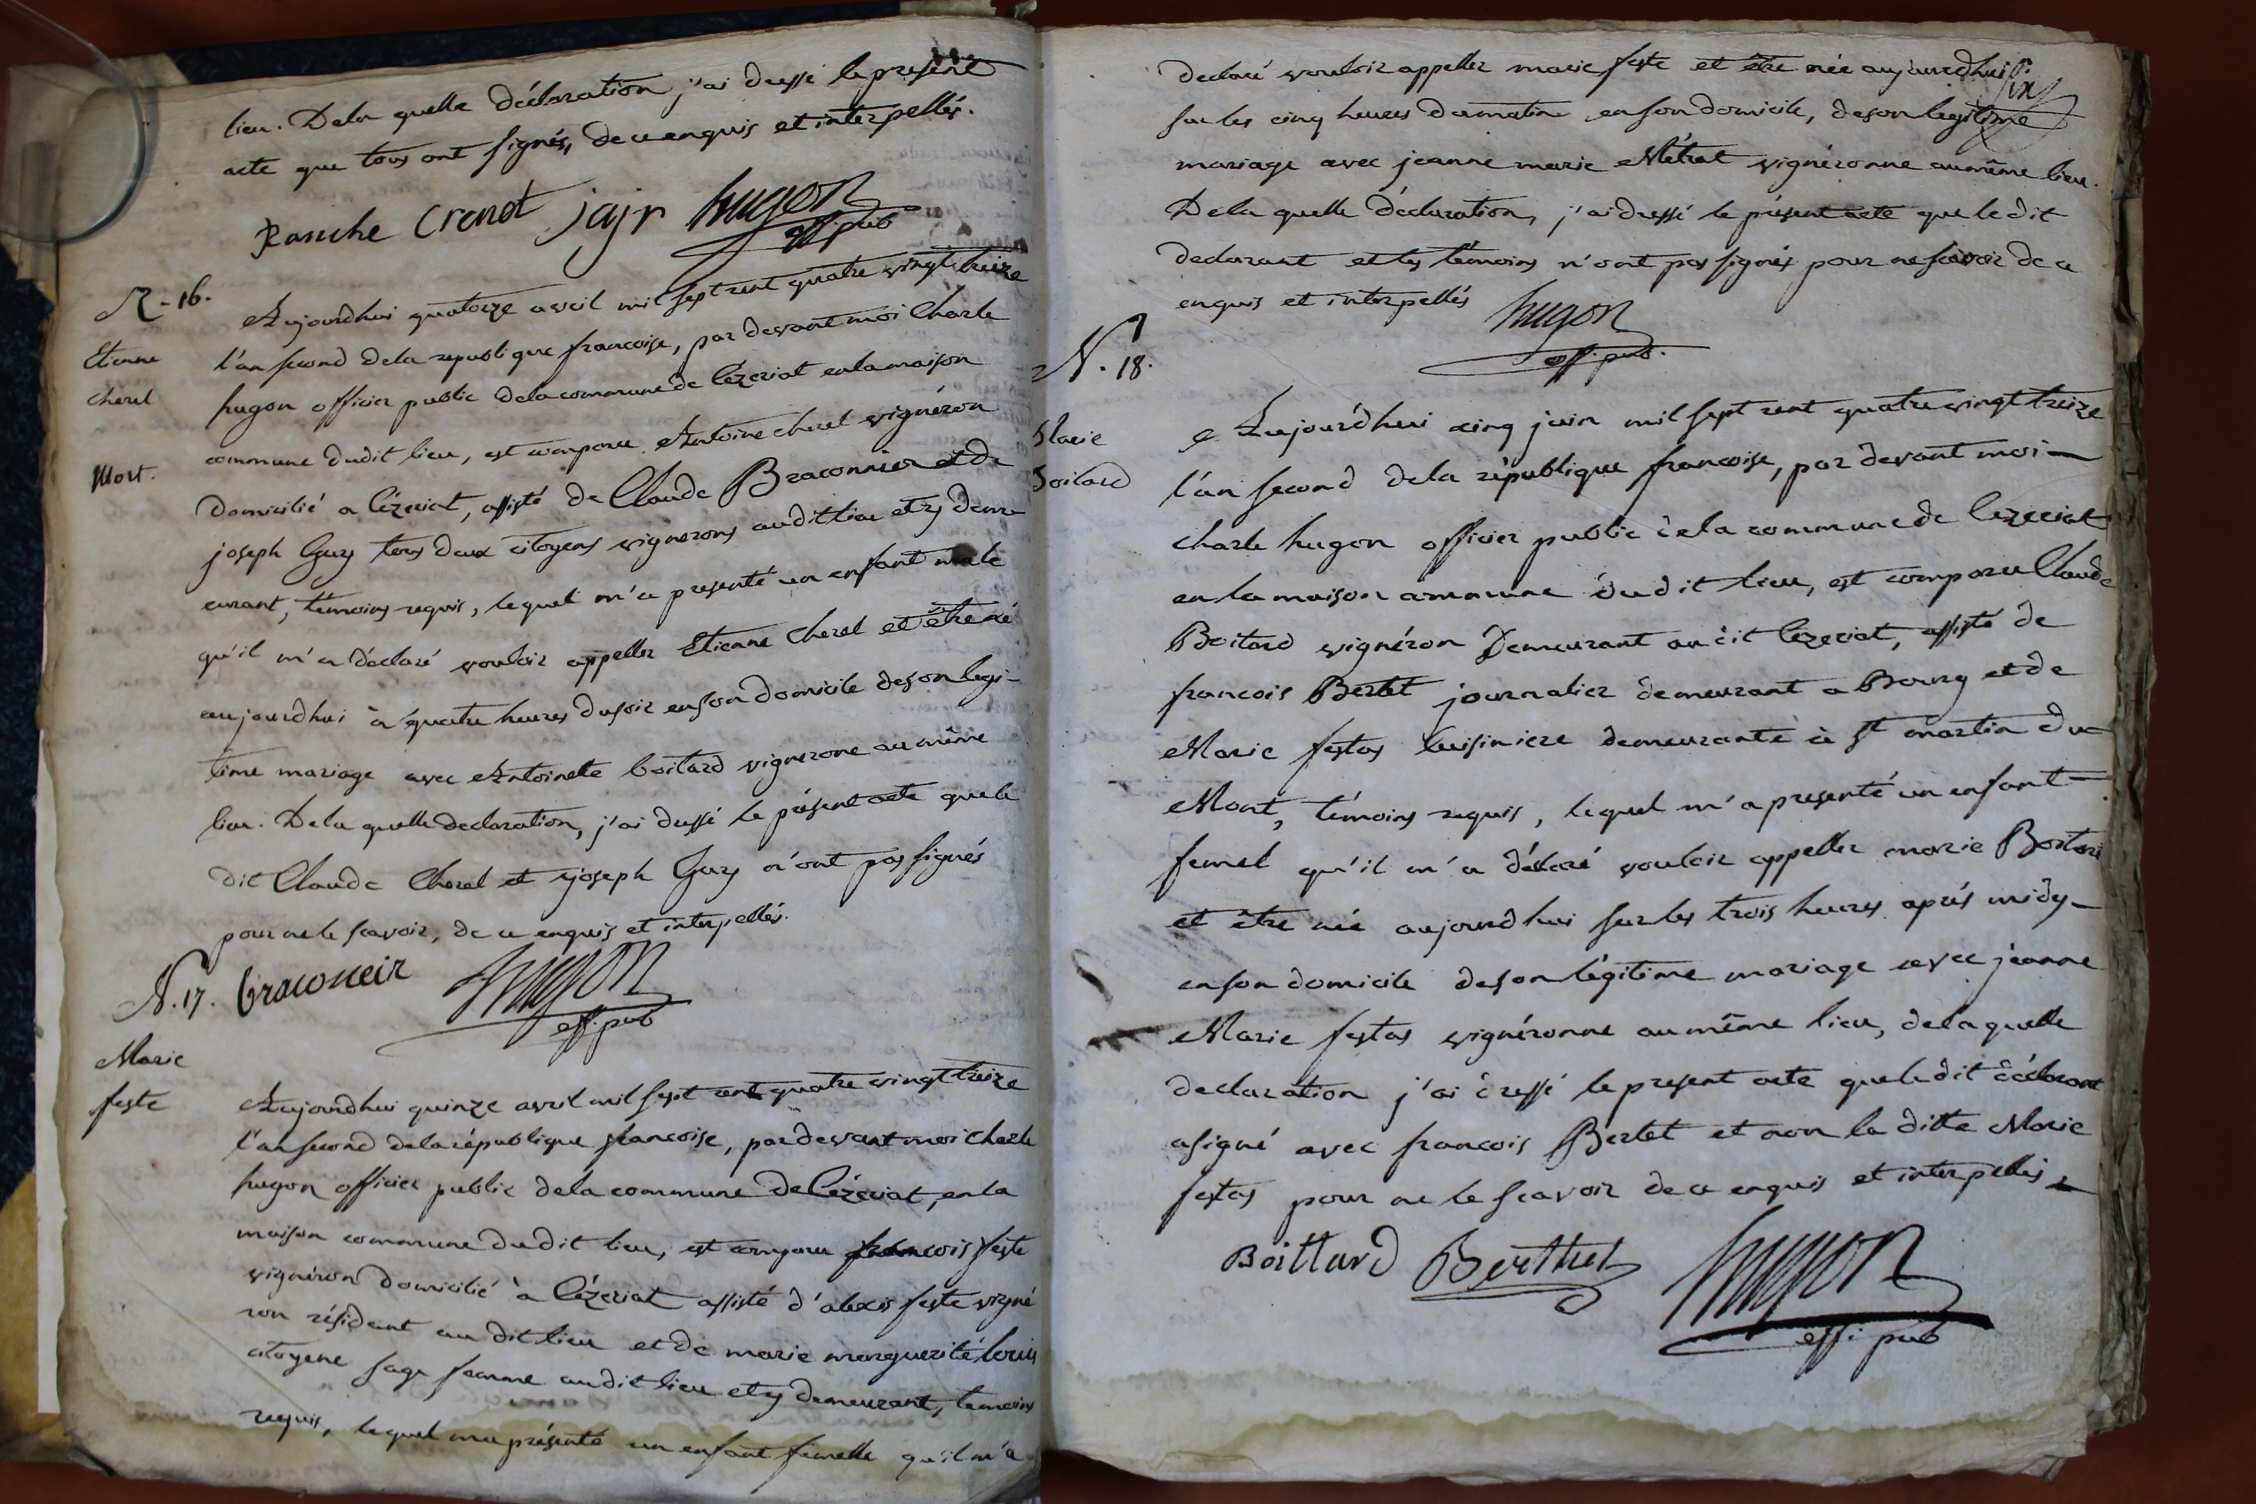 lieu. De la quelle déclaration j'ai dressé le présent
acte que tous ont signés, de ce enquis et interpellés.
Ranche Crenot jayr hugon
off. pub
N - 16.
Etienne
Cherel
Mort.
Aujourdhui quatorze avril mil sept cent quatre vingt treize
l'an second de la republique francoise, par devant moi Charle
hugon officier public de la commune de Cézeriat en la maison
commune dudit lieu, est comparu Antoine cherel vignéron
domicilié a Cézeriat, assisté de Claude Braconnier et de
joseph Guy tous deux citoyens vignerons audit lieu et y deme
eurant, témoins requis, lequel m'a presenté un enfant male
qu'il m'a déclaré vouloir appeller Etienne Cherel et être né
aujourdhui à quatre heures du soir en son domicile de son legi-
time mariage avec Antoinette boitard vignerone au même
lieu. De la quelle declaration, j'ai dressé le présent acte que le
dit Claude Cherel et joseph Guy n'ont pas signés
pour ne le scavoir, de ce enquis et interpellés.
braconeir hugon
off. pub
N. 17.
Marie
feste
Aujourdhui quinze avril mil sept cent quatre vingt treize
l'an second de la république francoise, par devant moi Charle
hugon officier public de la commune de Cézeriat, en la
maison commune dudit lieu, est comparu francois feste
vignéron domicilié à Cézeriat assisté d'alexis feste vigné
ron résident au dit lieu et de marie marguerite louis
citoyene sage femme audit lieu et y demeurant, temoins
requis, lequel m'a présenté un enfant femelle qu'il m'a
declaré vouloir appeller marie feste et être née aujourdhui
six
sur les cinq heures du matin en son domicile, de son legitime
mariage avec jeanne marie Métrat vignéronne au même lieu.
De la quelle déclaration, j'ai dressé le présent acte que le dit
declarant et les témoins n'ont pas signés pour ne scavoir de ce
enquis et interpellés hugon
off. pub.
N. 18.
Marie
Boitard
Aujourd'hui cinq juin mil sept cent quatre vingt treize
l'an second de la république francoise, par devant moi
charle hugon officier public de la commune de Cezeriat
en la maison commune du dit lieu, est comparu Claude
Boitard vignéron Demeurant au dit Cezeriat, assisté de
francois Bertet journalier demeurant a Bourg et de
Marie festas Cuisiniere demeurante à st martin du
Mont, témoins requis, lequel m'a presenté un enfant
femel qu'il m'a déclaré vouloir appeller marie Boitard
et être née aujourd'hui sur les trois heures aprés midy
en son domicile de son légitime mariage avec jeanne
Marie festas vignéronne au même lieu, de la quelle
declaration j'ai dressé le present acte que le dit déclarant
a signé avec francois Bertet et non la ditte Marie
festas pour ne le scavoir de ce enquis et interpellés
Boittard Berthet hugon
off. pub